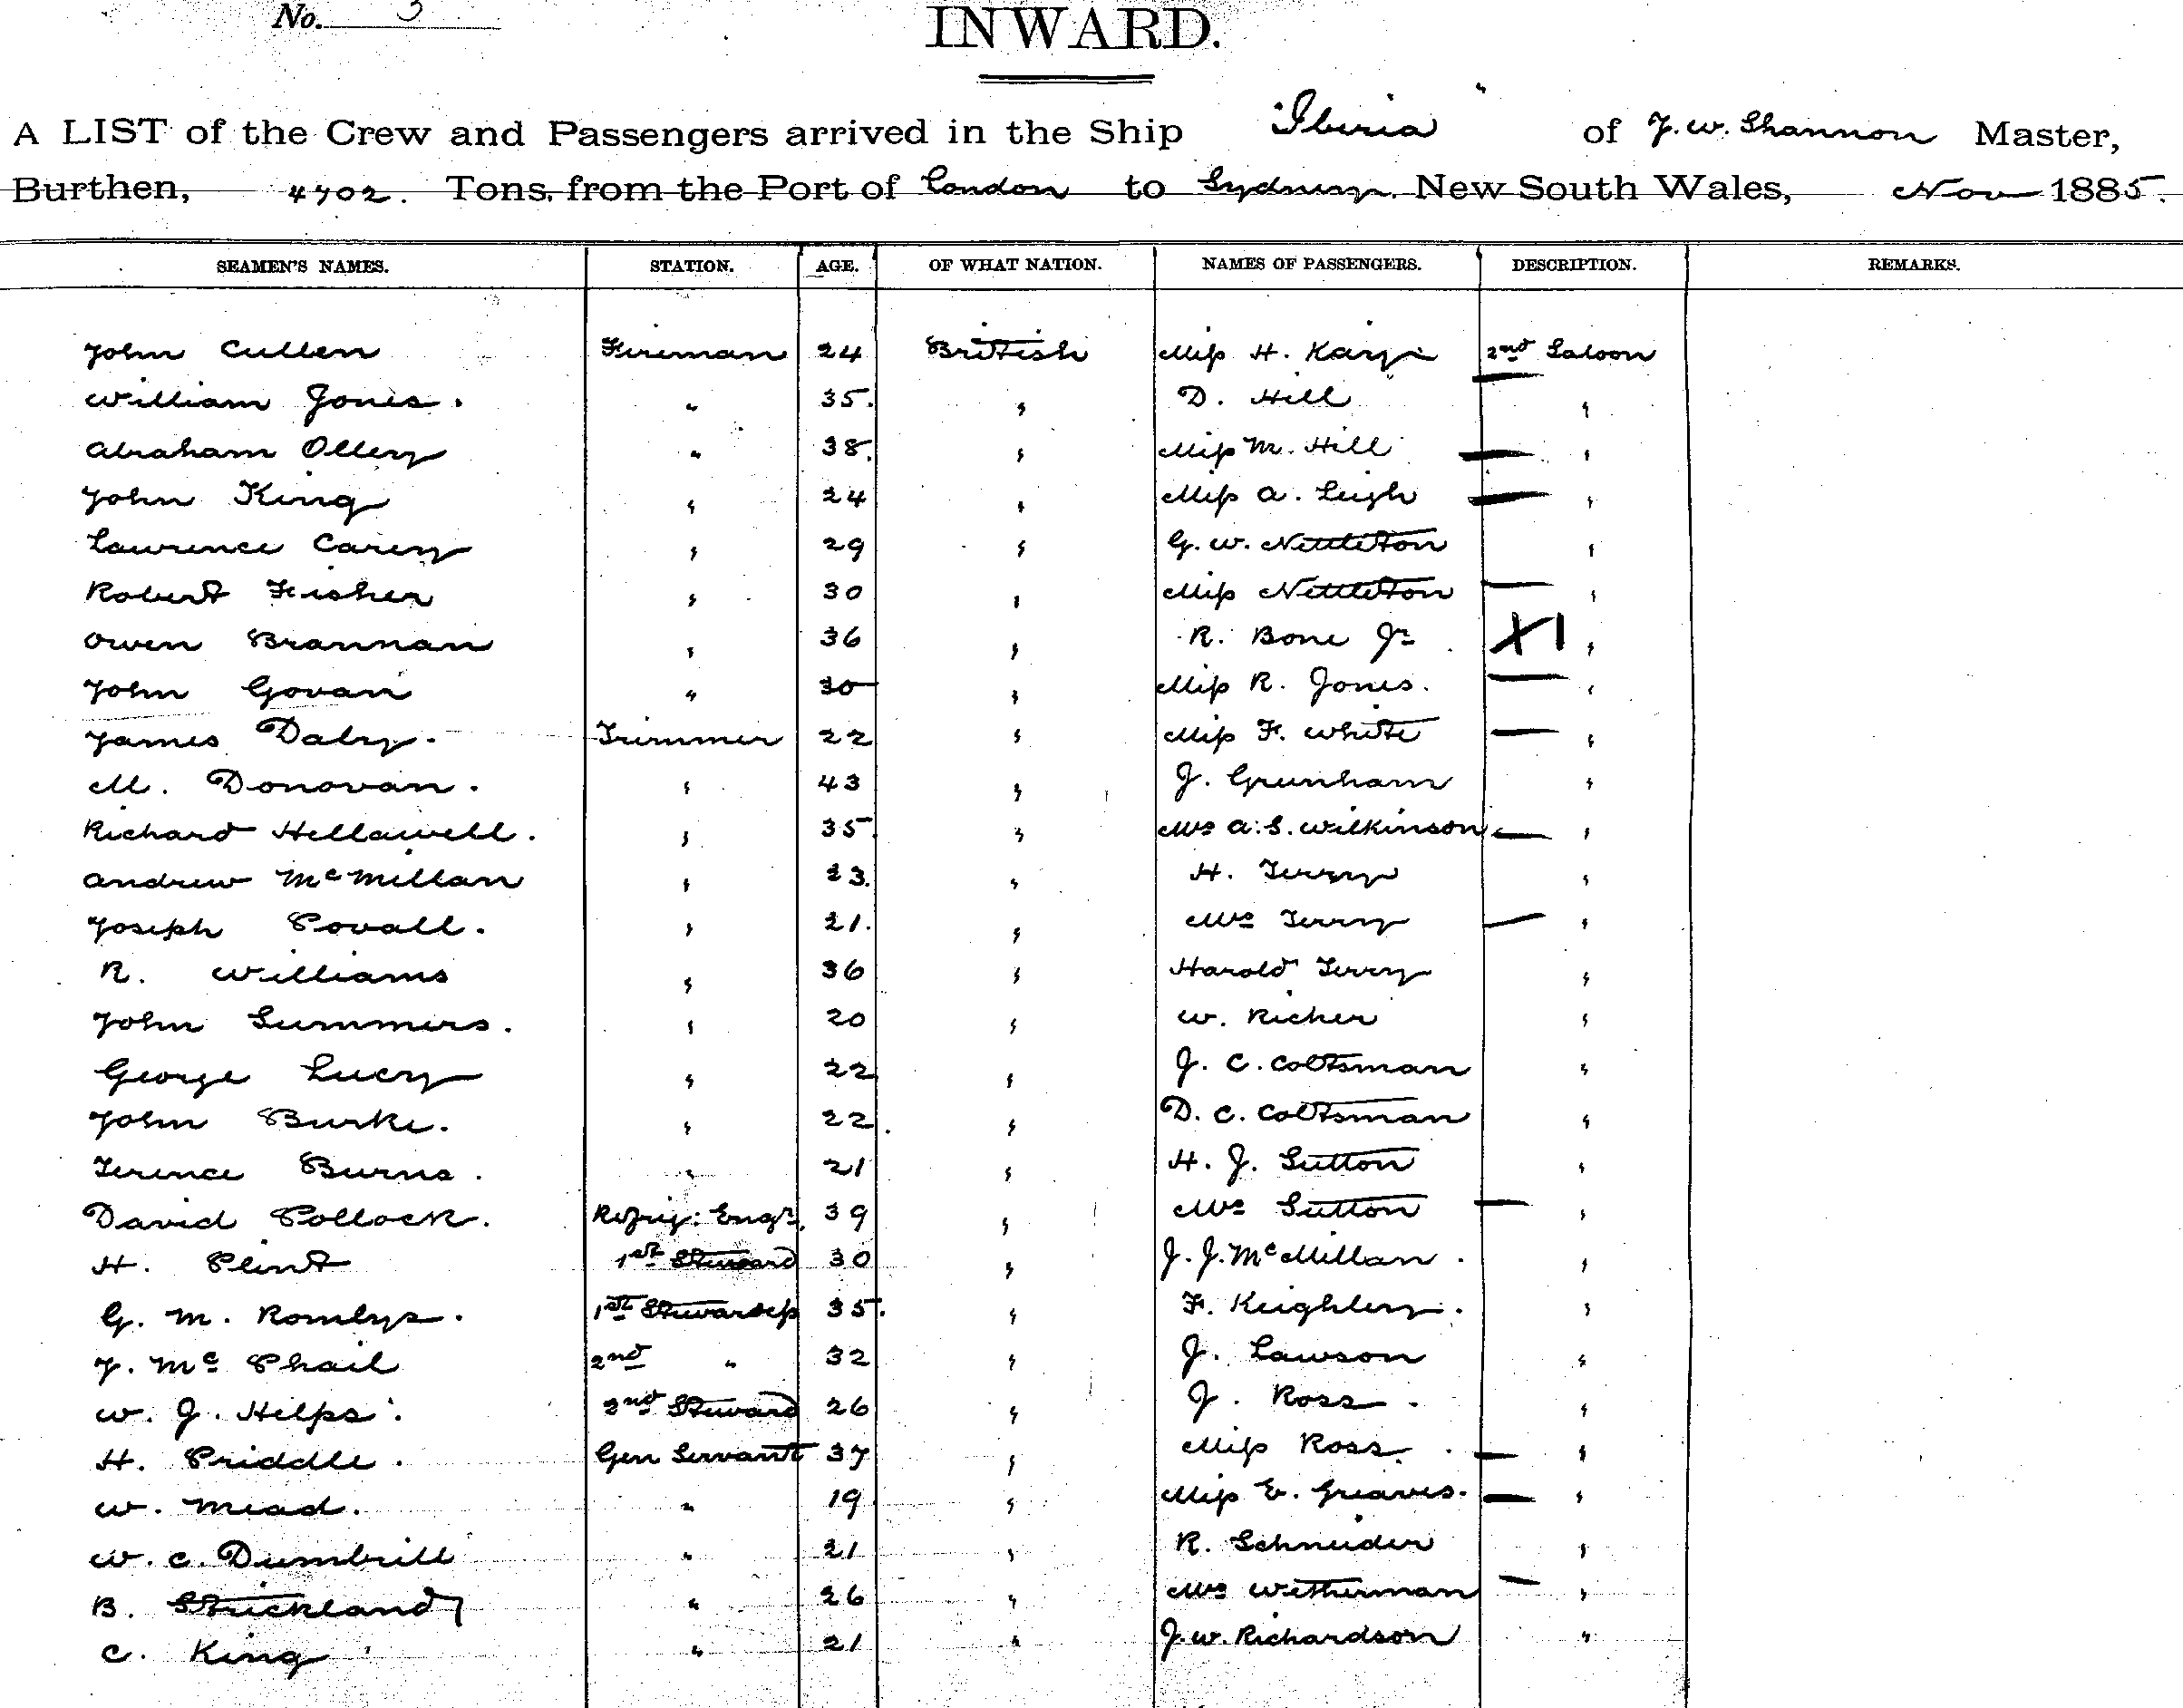 No. 3
INWARD.
A LIST of the Crew and Passengers arrived in the Ship "Iberia" of J. W. Shannon Master,
Burthen, 4702. Tons, from the Port of London to Sydney. New South Wales, Nov 1885.
SEAMEN'S NAMES. STATION. AGE. OF WHAT NATION. NAMES OF PASSENGERS. DESCRIPTION. REMARKS.
John Cullen Fireman 24 British Miss H. 2nd Saloon
William Jones. " 35. " D. Hill "
Abraham Ollery " 38. " Miss M. Hill "
John King " 24 " Miss A. Leigh "
Lawrence Carey " 29 " G. W. Nettleton "
Robert Fisher " 30 " Miss Nettleton "
Owen Brannan " 36 " R. Bone Jr. X1 "
John Govan " 30 " Miss R. Jones. "
James Daly. Trimmer 22 " Miss F. White "
M. Donovan. " 43 " J. Grunham "
Richard Hellawell. " 35. " Mrs A. S. Wilkinson "
Andrew McMillan " 23. " H. Terry "
Joseph Povall. " 21. " Mrs Terry "
R. Williams " 36 " Harold Terry "
John Summers. " 20 " W. Richer "
George Lucy " 22 " J. C. Coltsman "
John Burke. " 22. " D. C. Coltsman "
Terence Burns. " 21 " H. J. Sutton "
David Pollock. Refrig: Engr. 39 " Mrs Sutton "
H. Plint 1st Steward 30 " J. J. McMillan. "
G. M. Romlys. 1st Stewardess 35. " F. Keighley. "
J. McPhail 2nd " 32 " J. Lawson "
W. J. Helps. 2nd Steward 26 " J. Ross. "
H. Priddle. Gen Servant 37 " Miss Ross. "
W. Mead. " 19 " Miss E. Greaves. "
W. C. Dumbrill " 21 " R. Schneider "
B. Strickland " 26 " Mrs Witherman "
C. King " 21 " J. W. Richardson "